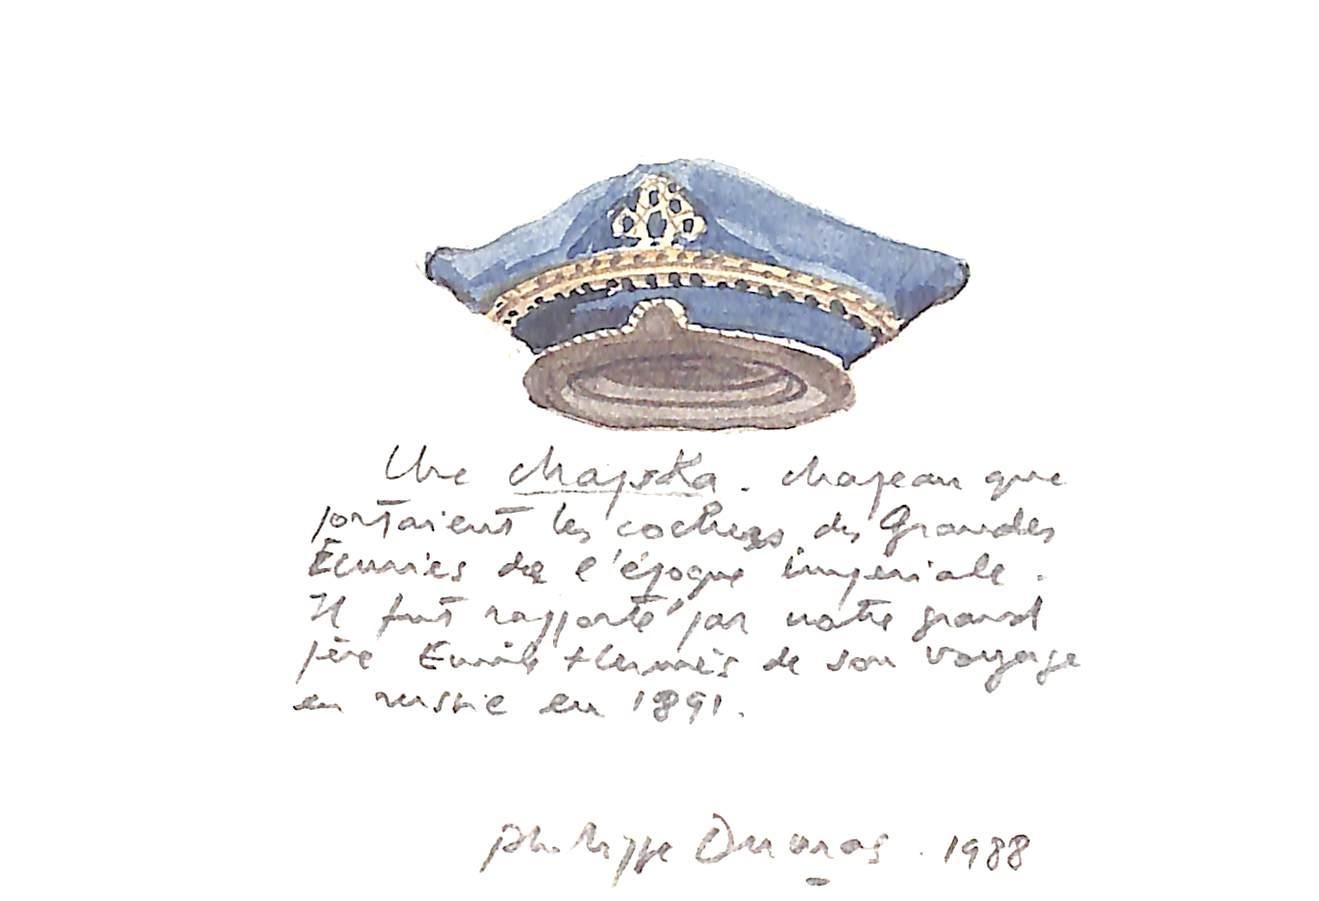 Une chapska. chapeau que
portaient les cochers des Grandes
Écuries de l'époque impériale.
Il fut rapporté par notre grand
père Emile Hermès de son voyage
en russie en 1891.
Philippe Dumas . 1988